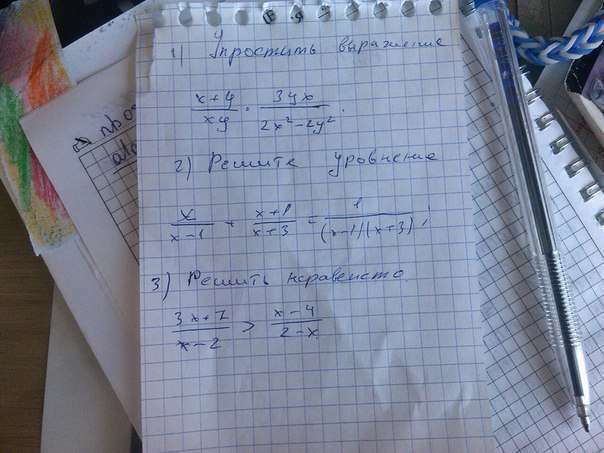 1) Упростить выражение
\frac{x+y}{xy} \cdot \frac{3yx}{2x^2-2y^2}.
2) Решите уровнение
\frac{x}{x-1} - \frac{x+1}{x+3} = \frac{1}{(x-1)(x+3)};
3) Решить неравенсто.
\frac{3x+7}{x-2} > \frac{x-4}{2-x}